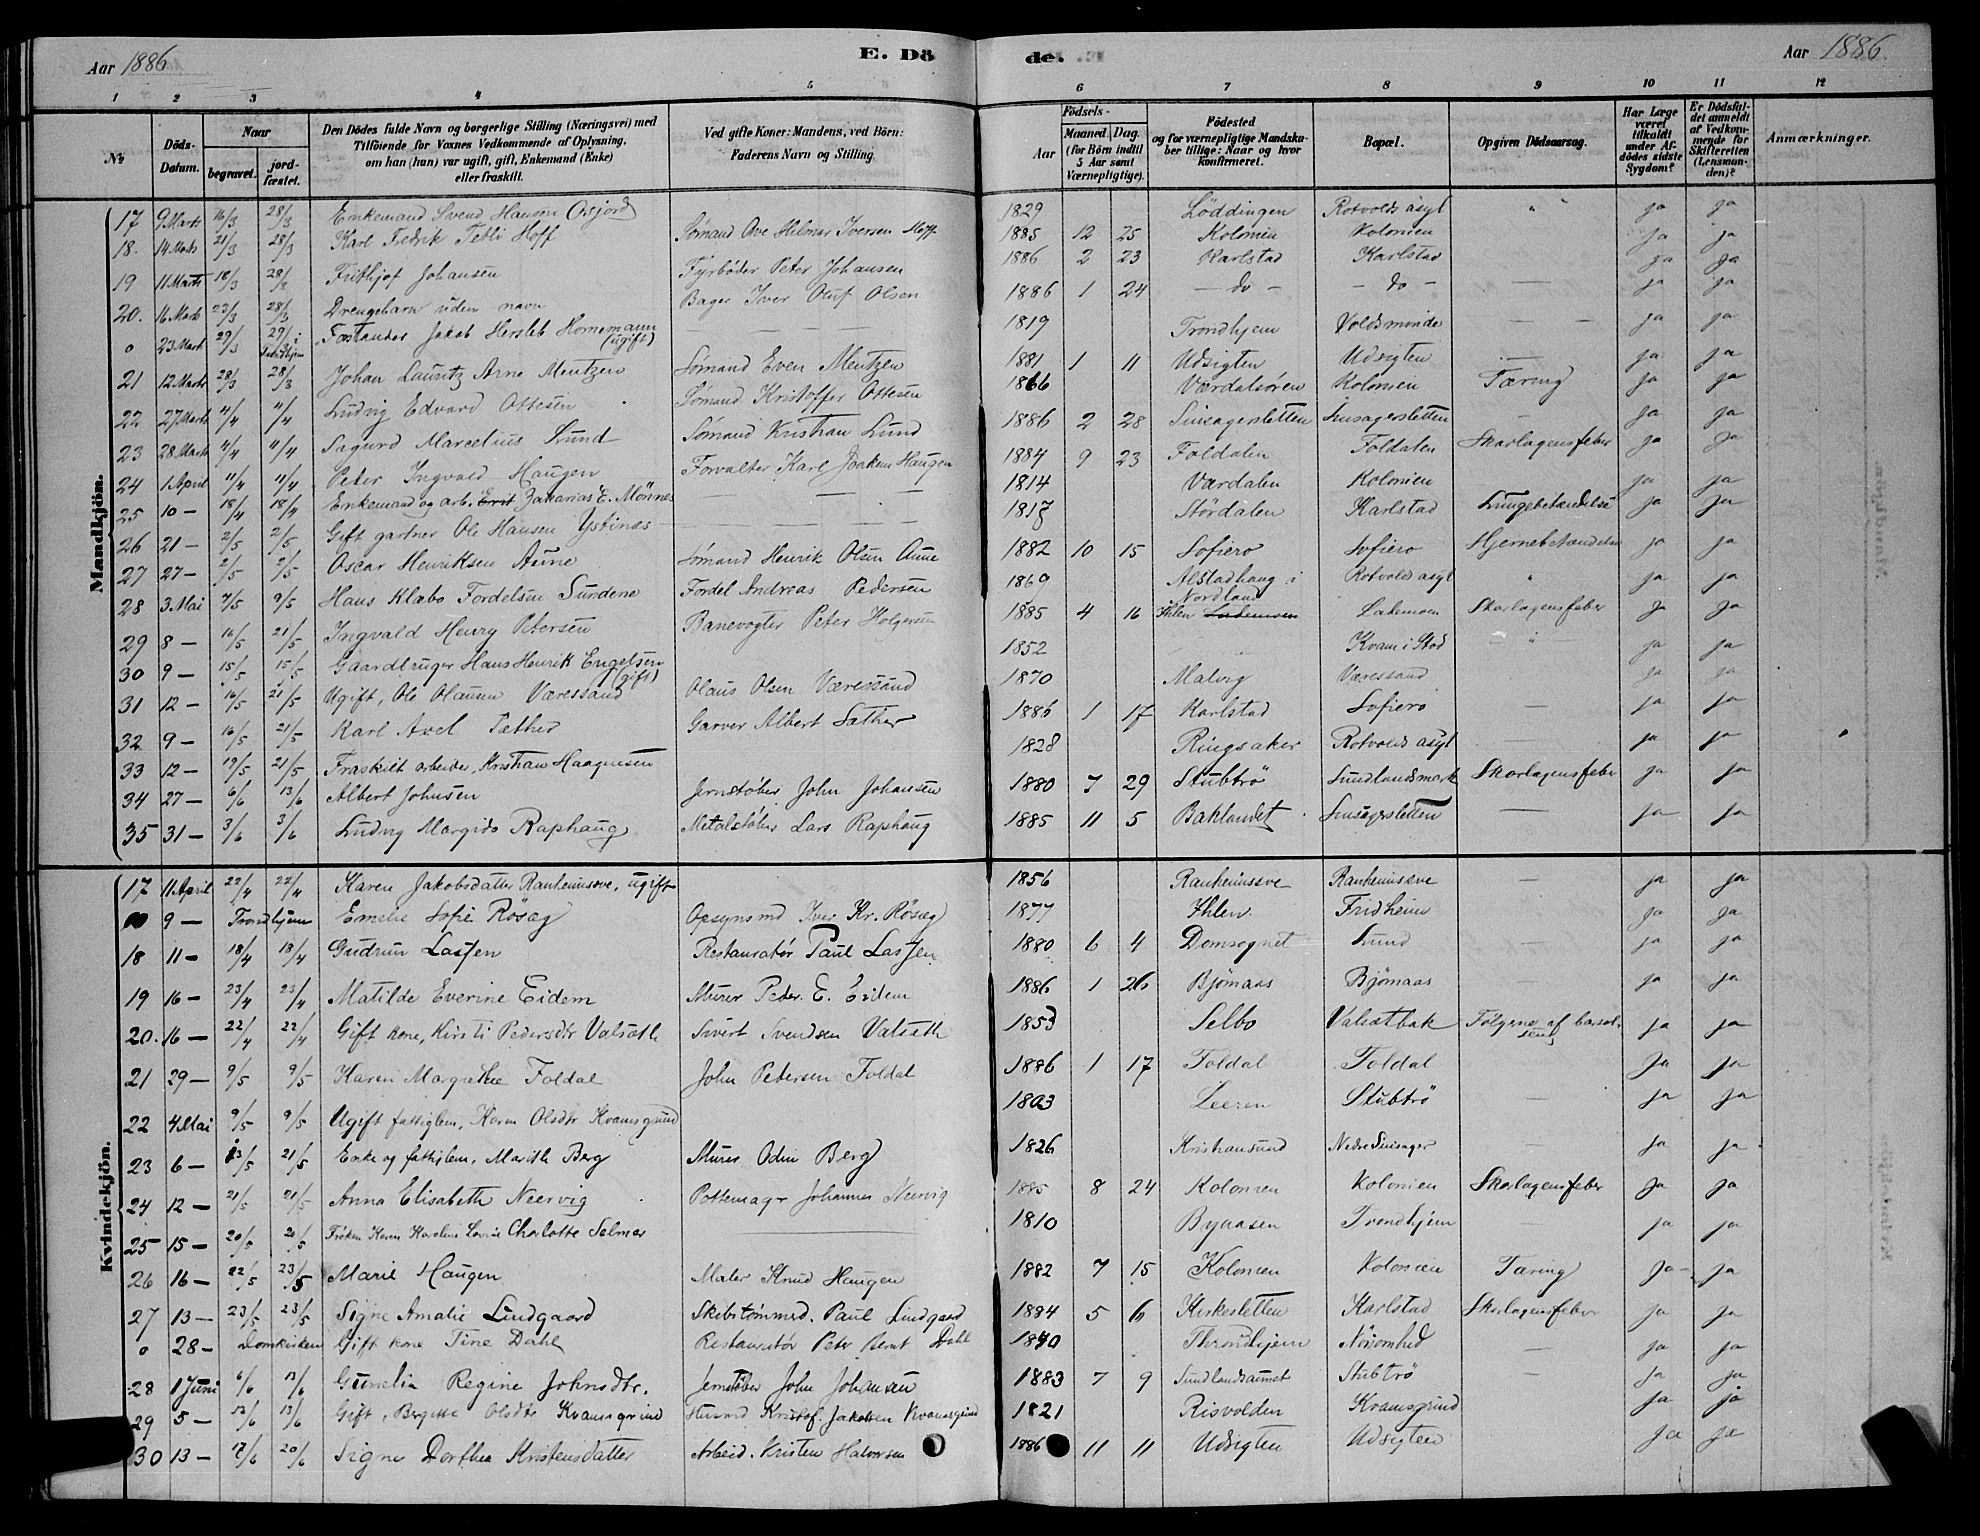 Aar 1886
E. Dö
de.
Aar 1886.
1 2 3 4 5 6 7 8 9 10 11 12
No
Döds-Datum.
Naar
begravet.
jord-fæstet.
Den Dödes fulde Navn og borgerlige Stilling (Næringsvei) med Tilföiende for Voxnes Vedkommende af Oplysning, om han (hun) var ugift, gift, Enkemand (Enke) eller fraskilt.
Ved gifte Koner: Mandens, ved Börn: Faderens Navn og Stilling
Födsels-
Aar
Maaned. Dag. (for Börn indtil 5 Aar samt Værnepligtige).
Födested og for værnepligtige Mandskaber tillige: Naar og hvor konfirmeret.
Bopæl.
Opgiven Dödsaarsag.
Har Læge været tilkaldt under Afdödes sidste Sygdom?
Er Dödsfaldet anmeldt af Vedkommende for Skifteretten (Lensmanden)?
Anmærkninger.
Mandkjön.
17 9 Marts 16/3 28/3 Enkemand Svend Hansen Osfjord 1829 Löddingen Rotvolds asyl " ja ja
18. 14 Marts 21/3 28/3 Karl Fedrik Tetli Hoff Sömand Ove Hilmar Iversen Hoff 1885 12 25 Kolonien Kolonien ja ja
19 11 Marts 18/3 28/3 Frithjof Johansen Fyrböder Peter Johansen 1886 2 23 Karlstad Karlstad ja ja
20. 16 Marts 23/3 28/3 Drengebarn uden navn Bager Iver Oluf Olsen 1886 1 24 - do - - do - ja ja
0 23 Mart 29/3 29/3 i Trondhjem Forstander Jakob Hersleb Hornemann (ugift) 1819 Trondhjem Voldsminde ja ja
21 12 Marts 28/3 28/3 Johan Lauritz Arne Mentzen Sömand Even Mentzen 1881 1 11 Udsigten Udsigten ja ja
22 27 Marts 4/4 4/4 Ludvig Edvard Ottesen Sömand Kristoffer Ottesen 1866 Værdalsören Kolonien Tæring ja ja
23 28 Marts 4/4 4/4 Sigurd Marcelius Lund Sömand Kristian Lund 1886 2 28 Sinsagersletten Sinsagersletten ja ja
24 1 April 11/4 11/4 Peter Ingvald Haugen Forvalter Karl Joakim Haugen 1884 9 23 Foldalen Foldalen Skarlagensfeber ja ja
25 10 - 18/4 18/4 Enkemand og arb. Zakarias E. Mönnes 1814 Værdalen Kolonien ja ja
26 21 - 2/5 2/5 Gift gartner Ole Hansen Ystines 1817 Stördalen Karlstad Lungebetændelse ja ja
27 27 - 2/5 2/5 Oscar Henriksen Aune Sömand Henrik Olsen Aune 1882 10 15 Sofiero Sofiero Hjernebetændelse ja ja
28 3. Mai 7/5 9/5 Hans Klæbo Fordelsen Sundene Fordel Andreas Pedersen 1869 Alstadhaug i Nordland Rotvolds asyl " ja ja
29 8 - 16/5 21/5 Ingvald Henry Petersen Banevogter Peter Holgersen 1885 4 16 Ihlen Lademoen Lademoen Skarlagensfeber ja ja
30 9 - 15/5 15/5 Gaardbruger Hans Henrik Engelsen (gift) 1852 Kvam i Stod - " - ja ja
31 12 - 16/5 21/5 Ugift, Ole Olausen Væressand Olaus Olsen Væressand 1870 Malvig Væressand ja ja
32 9 - 16/5 21/5 Karl Axel Sæther Garver Albert Sæther 1886 1 17 Karlstad Sofiero ja ja
33 12 - 19/5 21/5 Fraskilt arbeider, Kristian Haagensen 1828 Ringsaker Rotvolds asyl ja ja
34 27 - 6/6 13/6 Albert Johnsen Jernstöber John Johansen 1880 7 29 Stubtrö Sundlandsmark Skarlagensfeber ja ja
35 31 - 3/6 3/6 Ludvig Margido Raphaug Metalstöber Lars Raphaug 1885 11 5 Baklandet Sinsagersletten ja ja
Kvindekjön.
17 11 April 22/4 22/4 Karen Jakobsdatter Ranheimsve, ugift 1856 Ranheimsve Ranheimsve ja ja
9 - Trondhjem Emelie Sofie Rösæg Opsynsmd Iver Kr. Rösæg 1877 Ihlen Fridheim ja ja
18 11 - 13/4 13/4 Gudrun Lassen Restauratör Paul Lassen 1880 6 4 Domsognet Lund ja ja
19 16 - 23/4 23/4 Matilde Everine Eidem Murer Peder E. Eidem 1886 1 26 Bjömaas Bjömaas ja ja
20. 16 - 22/4 22/4 Gift kone, Kirsti Pedersdtr Valsæth Sivert Svendsen Valsæth 1853 Selbo Valsætbak Fölgerne af barselseng ja ja
21 29 - 9/5 9/5 Karen Margrethe Foldal John Petersen Foldal 1886 1 17 Foldal Foldal ja ja
22 4 Mai 9/5 9/5 Ugift fattiglem, Karen Olsdtr Kvamsgrind 1803 Leeren Stubtrö ja ja
23 6 - 13/5 21/5 Enke og fattiglem, Marith Berg Murer Odin Berg 1826 Kristiansund Nedre Sinsager ja ja
24 12 - 21/5 21/5 Anna Elisabeth Neervig Pottemagr Johannes Neervig 1885 8 24 Kolonien Kolonien Skarlagensfeber ja ja
25 15 - 20/5 20/5 Fröken Karen Karoline Lovise Charlotte Selmer 1810 Bynæsen Trondhjem ja ja
26 16 - 22/5 23/5 Marie Haugen Maler Knud Haugen 1882 7 15 Kolonien Kolonien Tæring ja ja
27 13 - 23/5 23/5 Signe Amalie Lundgaard Skibstömmerm. Paul Lundgaard 1884 5 6 Kirkesletten Karlstad Skarlagensfeber ja ja
0 28 - Domkirken Gift kone Tine Dahl Restauratör Peter Bernt Dahl 1840 Throndhjem Nöisomhed ja ja
28 1 Juni 6/6 13/6 Gunelia Regine Johnsdtr. Jernstöber John Johansen 1883 7 9 Sundlandsaunet Stubtrö ja ja
29 5 - 13/6 13/6 Gift, Bergitte Olsdtr Kvamsgrind Husmd Kristof. Jakobsen Kvamsgrind 1821 Risvolden Kvamsgrind ja ja
30 13 - 17/6 20/6 Signe Dorthea Kristensdatter Arbeid. Kristen Halvorsen 1886 11 11 Udsigten Udsigten ja ja